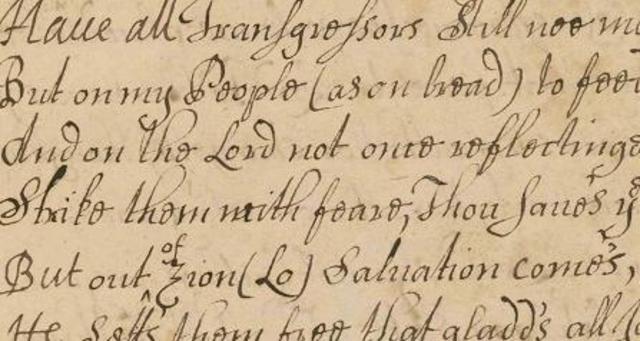 Haue all Transgressors still noe
But on my People (as on bread) to feed
And on the Lord not once reflectinge
Strike them with feare, Thou saues't ye
But out of Zion (Lo) Saluation comes,
He setts them free that gladd's all